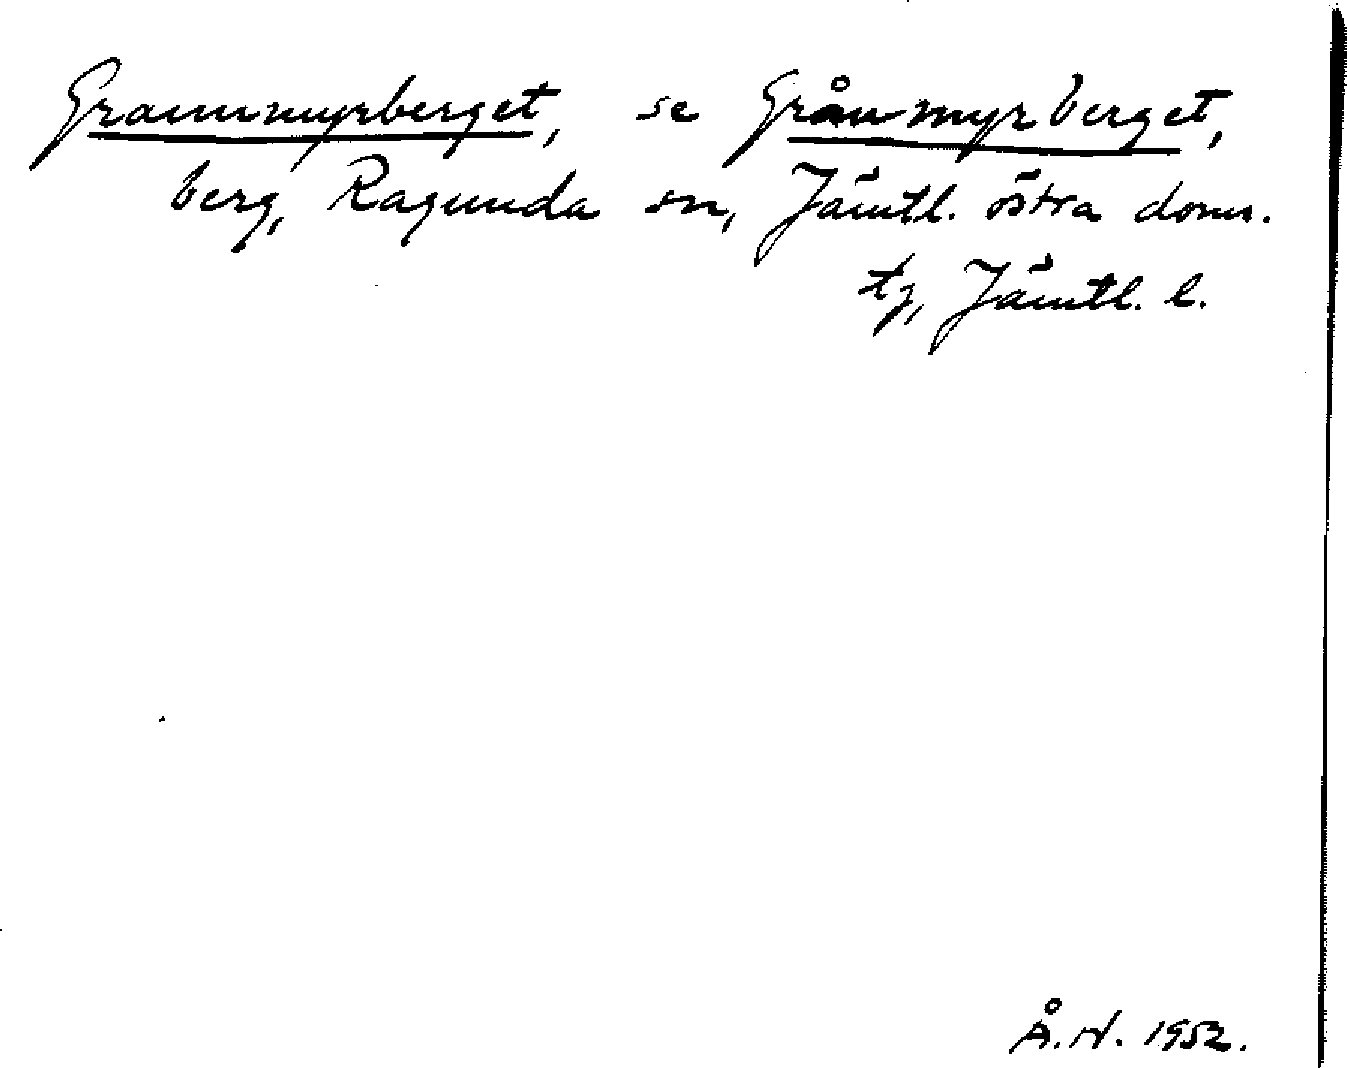 Grannmyrberget, se Grånmyrberget,
berg, Ragunda sn, Jämtl. östra doms.
tg, Jämtl. l.
Å.N. 1952.